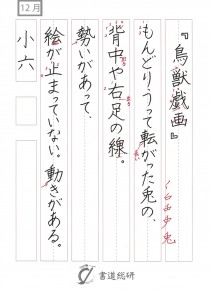 12月
『鳥獣戯画』
もんどりうって転がった兎の、
背中や右足の線。
勢いがあって、
絵が止まっていない。動きがある。
小六
書道総研